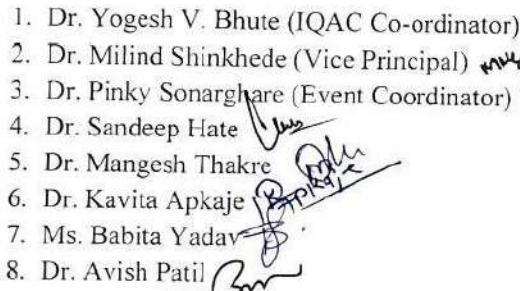 1. Dr. Yogesh V. Bhute (IQAC Co-ordinator)
2. Dr. Milind Shinkhede (Vice Principal)
3. Dr. Pinky Sonarghare (Event Coordinator)
4. Dr. Sandeep Hate
5. Dr. Mangesh Thakre
6. Dr. Kavita Apkaje
7. Ms. Babita Yadav
8. Dr. Avish Patil